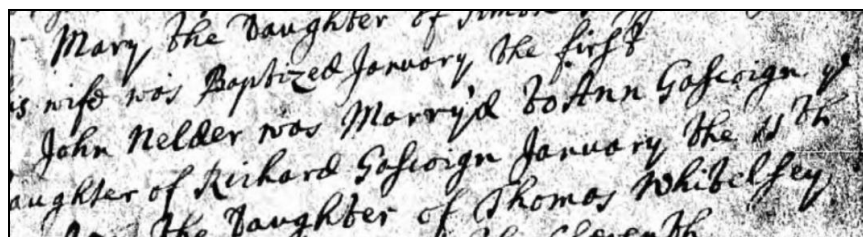 Mary the Daughter of Simon
his wife was Baptized January the first
John Nelder was Marry'd to Ann Gascoign ye
Daughter of Richard Gascoign January the 11th
the Daughter of Thomas Whitelsey
the Eleventh